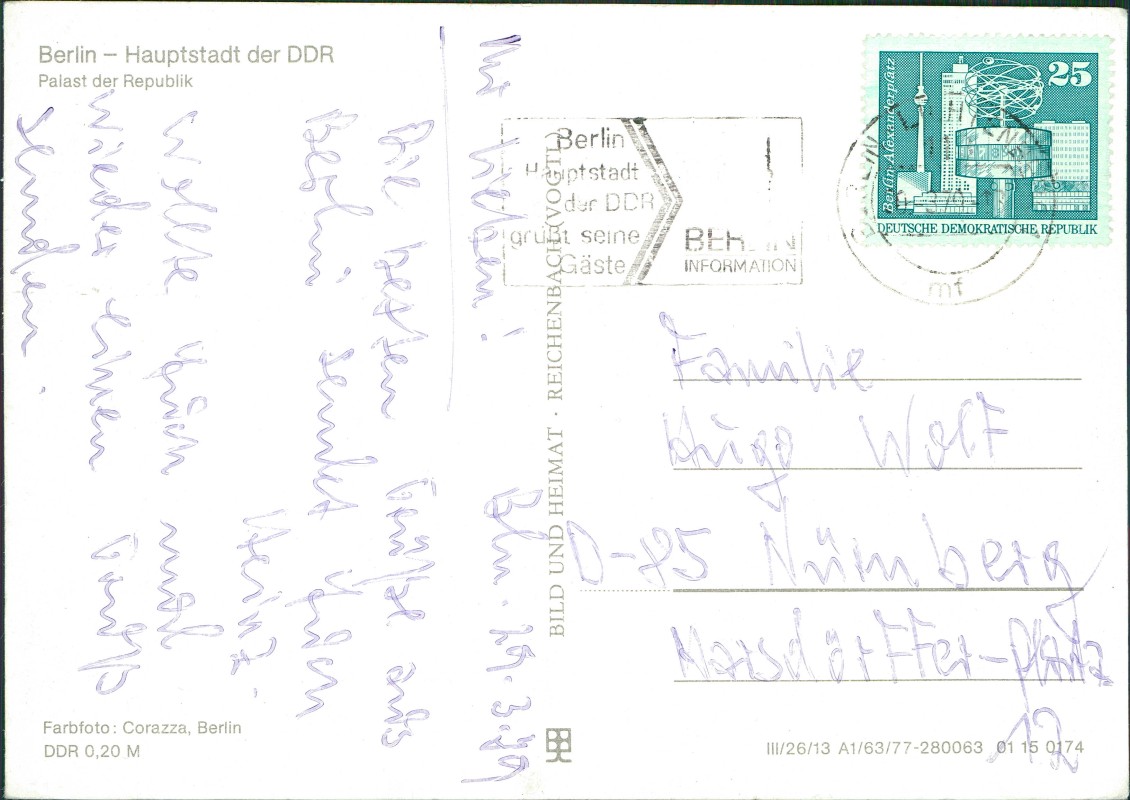 Berlin – Hauptstadt der DDR
Palast der Republik
Bln. 29.3.89
Ihr Lieben!
Die besten Grüße aus
Berlin sendet Ihnen
Heinz.
Wollte Euch mal
wieder einen Gruß
senden.
Farbfoto: Corazza, Berlin
DDR 0,20 M
BILD UND HEIMAT · REICHENBACH (VOGTL)
Berlin
Hauptstadt
der DDR
grüßt seine
Gäste
BERLIN
INFORMATION
BERLIN
mf
25
Berlin-Alexanderplatz
DEUTSCHE DEMOKRATISCHE REPUBLIK
Familie
Hugo Wolf
D-85 Nürnberg
12
III/26/13 A1/63/77-280063 01 15 0174